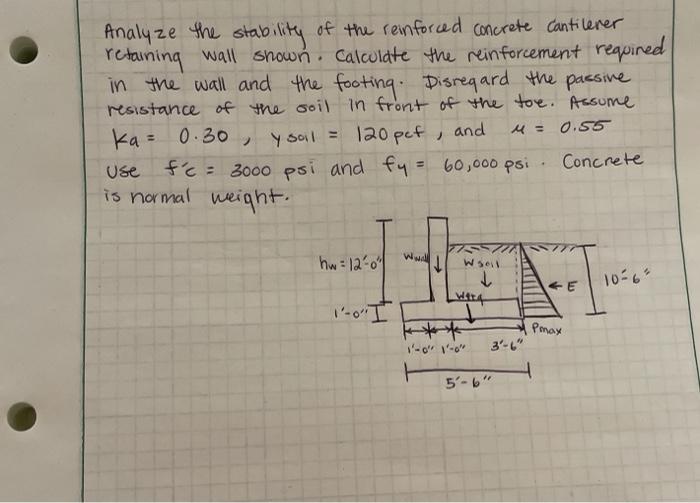 Analyze the stability of the reinforced concrete cantilever
retaining wall shown. Calculate the reinforcement required
in the wall and the footing. Disregard the passive
resistance of the soil in front of the toe. Assume
Ka = 0.30, γ soil = 120 pcf, and μ = 0.55
Use f'c = 3000 psi and fy = 60,000 psi. Concrete
is normal weight.
hw = 12'-0"
Wwall
Wsoil
E
10'-6"
1'-0"
Wftg
Pmax
1'-0" 1'-0" 3'-6"
5'-6"